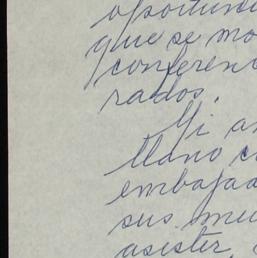 oportuni
que se mo
conferen
rados.
Mi a
llano c
embajad
sus
asister,